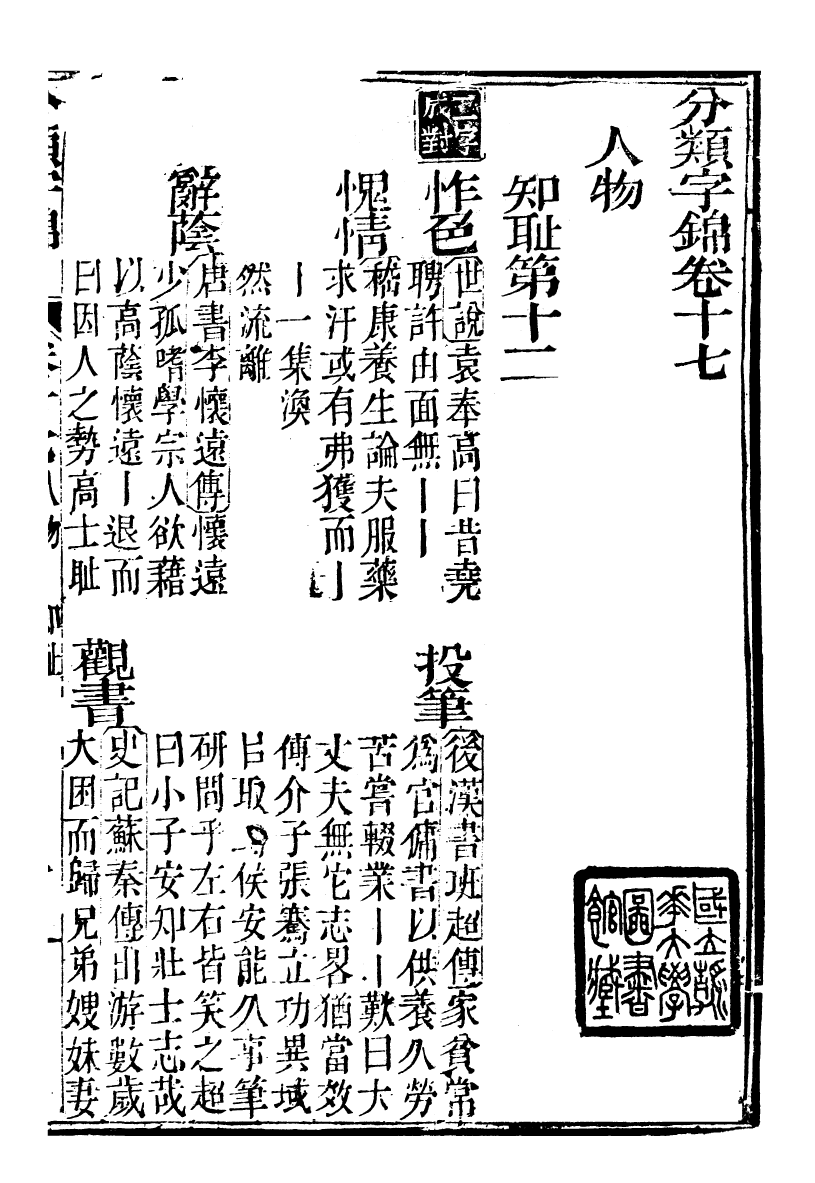 分類字錦卷十七
人物
知耻第十二
二字成對
怍色
世說袁奉高曰昔堯
聘許由面無丨丨
愧情
嵇康養生論夫服藥
求汗或有弗獲而丨
丨一集渙
然流離
辭蔭
唐書李懷遠傳懷遠
少孤嗜學宗人欲藉
以高蔭懷遠丨退而
曰因人之勢高士耻
投筆
後漢書班超傳家貧常
爲官傭書以供養久勞
苦嘗輟業丨丨歎曰大
丈夫無它志畧猶當效
傅介子張騫立功異域
㠯取侯安能久事筆
研間乎左右皆笑之超
曰小子安知壯士志哉
觀書
史記蘇秦傳出游數歲
大困而歸兄弟嫂妹妻
國立
大學
圖書
館藏